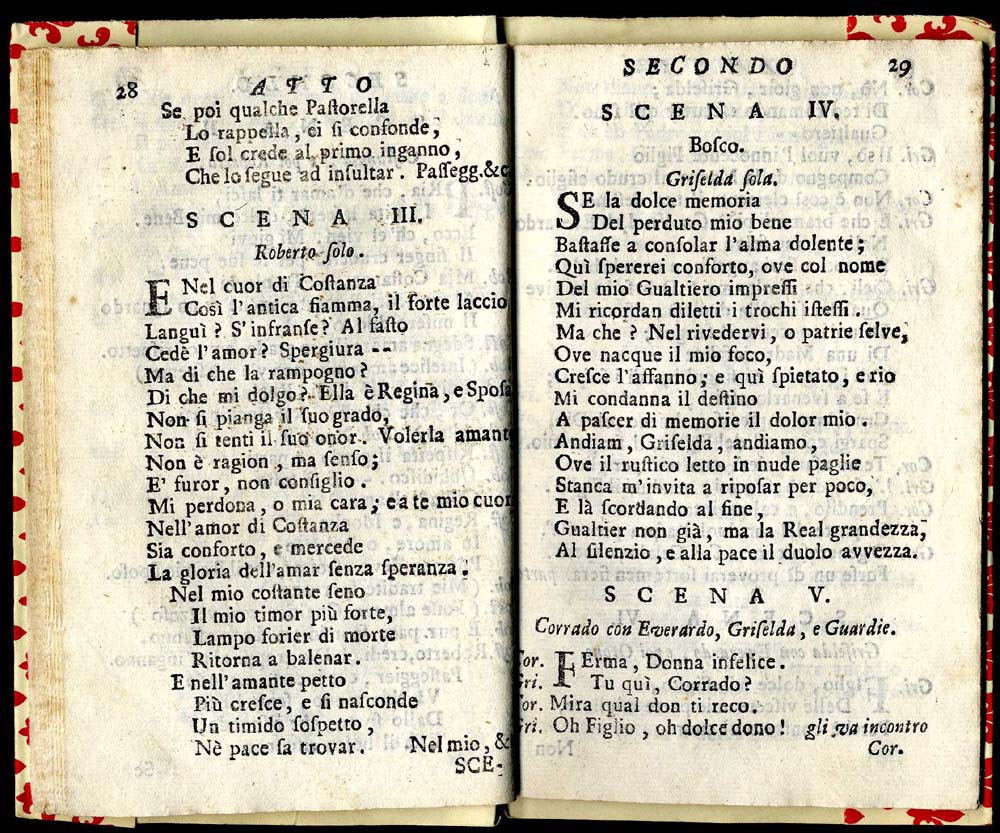 28 ATTO
Se poi qualche Paſtorella
Lo rappella, ei ſi confonde,
E ſol crede al primo inganno,
Che lo ſegue ad inſultar. Paſſegg.&c
SCENA III.
Roberto ſolo.
E Nel cuor di Coſtanza
Così l'antica fiamma, il forte laccio
Languì? S'infranſe? Al faſto
Cedè l'amor? Spergiura --
Ma di che la rampogno?
Di che mi dolgo? Ella è Regina, e Spoſa
Non ſi pianga il ſuo grado,
Non ſi tenti il ſuo onor. Volerla amante
Non è ragion, ma ſenſo;
E' furor, non conſiglio.
Mi perdona, o mia cara; e a te mio cuor
Nell'amor di Coſtanza
Sia conforto, e mercede
La gloria dell'amar ſenza ſperanza.
Nel mio coſtante ſeno
Il mio timor più forte,
Lampo forier di morte
Ritorna a balenar.
E nell'amante petto
Più creſce, e ſi naſconde
Un timido ſoſpetto,
Nè pace ſa trovar. Nel mio, &c
SCE-
SECONDO 29
SCENA IV.
Boſco.
Griſelda ſola.
SE la dolce memoria
Del perduto mio bene
Baſtaſſe a conſolar l'alma dolente;
Quì ſpererei conforto, ove col nome
Del mio Gualtiero impreſſi
Mi ricordan diletti i trochi iſteſſi.
Ma che? Nel rivedervi, o patrie ſelve,
Ove nacque il mio foco,
Creſce l'affanno; e quì ſpietato, e rio
Mi condanna il deſtino
A paſcer di memorie il dolor mio.
Andiam, Griſelda, andiamo,
Ove il ruſtico letto in nude paglie
Stanca m'invita a ripoſar per poco,
E là ſcordando al fine,
Gualtier non già, ma la Real grandezza,
Al ſilenzio, e alla pace il duolo avvezza.
SCENA V.
Corrado con Everardo, Griſelda, e Guardie.
Cor. FErma, Donna infelice.
Gri. Tu quì, Corrado?
Cor. Mira qual don ti reco.
Gri. Oh Figlio, oh dolce dono! gli va incontro
Cor.